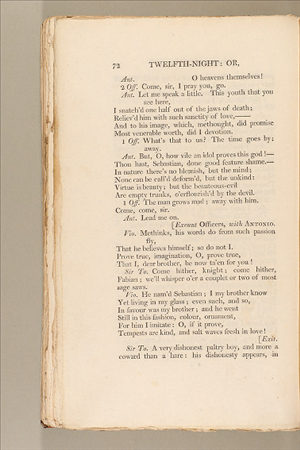 72 TWELFTH-NIGHT: OR,
Ant. O heavens themselves!
2 Off. Come, sir, I pray you, go.
Ant. Let me speak a little. This youth that you
see here,
I snatch'd one half out of the jaws of death;
Reliev'd him with such sanctity of love,——
And to his image, which, methought, did promise
Most venerable worth, did I devotion.
1 Off. What's that to us? The time goes by;
away.
Ant. But, O, how vile an idol proves this god!—
Thou hast, Sebastian, done good feature shame.—
In nature there's no blemish, but the mind;
None can be call'd deform'd, but the unkind:
Virtue is beauty; but the beauteous-evil
Are empty trunks, o'erflourish'd by the devil.
1 Off. The man grows mad; away with him.
Come, come, sir.
Ant. Lead me on.
[Exeunt Officers, with ANTONIO.
Vio. Methinks, his words do from such passion
fly,
That he believes himself; so do not I.
Prove true, imagination, O, prove true,
That I, dear brother, be now ta'en for you!
Sir To. Come hither, knight; come hither,
Fabian; we'll whisper o'er a couplet or two of most
sage saws.
Vio. He nam'd Sebastian; I my brother know
Yet living in my glass; even such, and so,
In favour was my brother; and he went
Still in this fashion, colour, ornament,
For him I imitate: O, if it prove,
Tempests are kind, and salt waves fresh in love!
[Exit.
Sir To. A very dishonest paltry boy, and more a
coward than a hare: his dishonesty appears, in